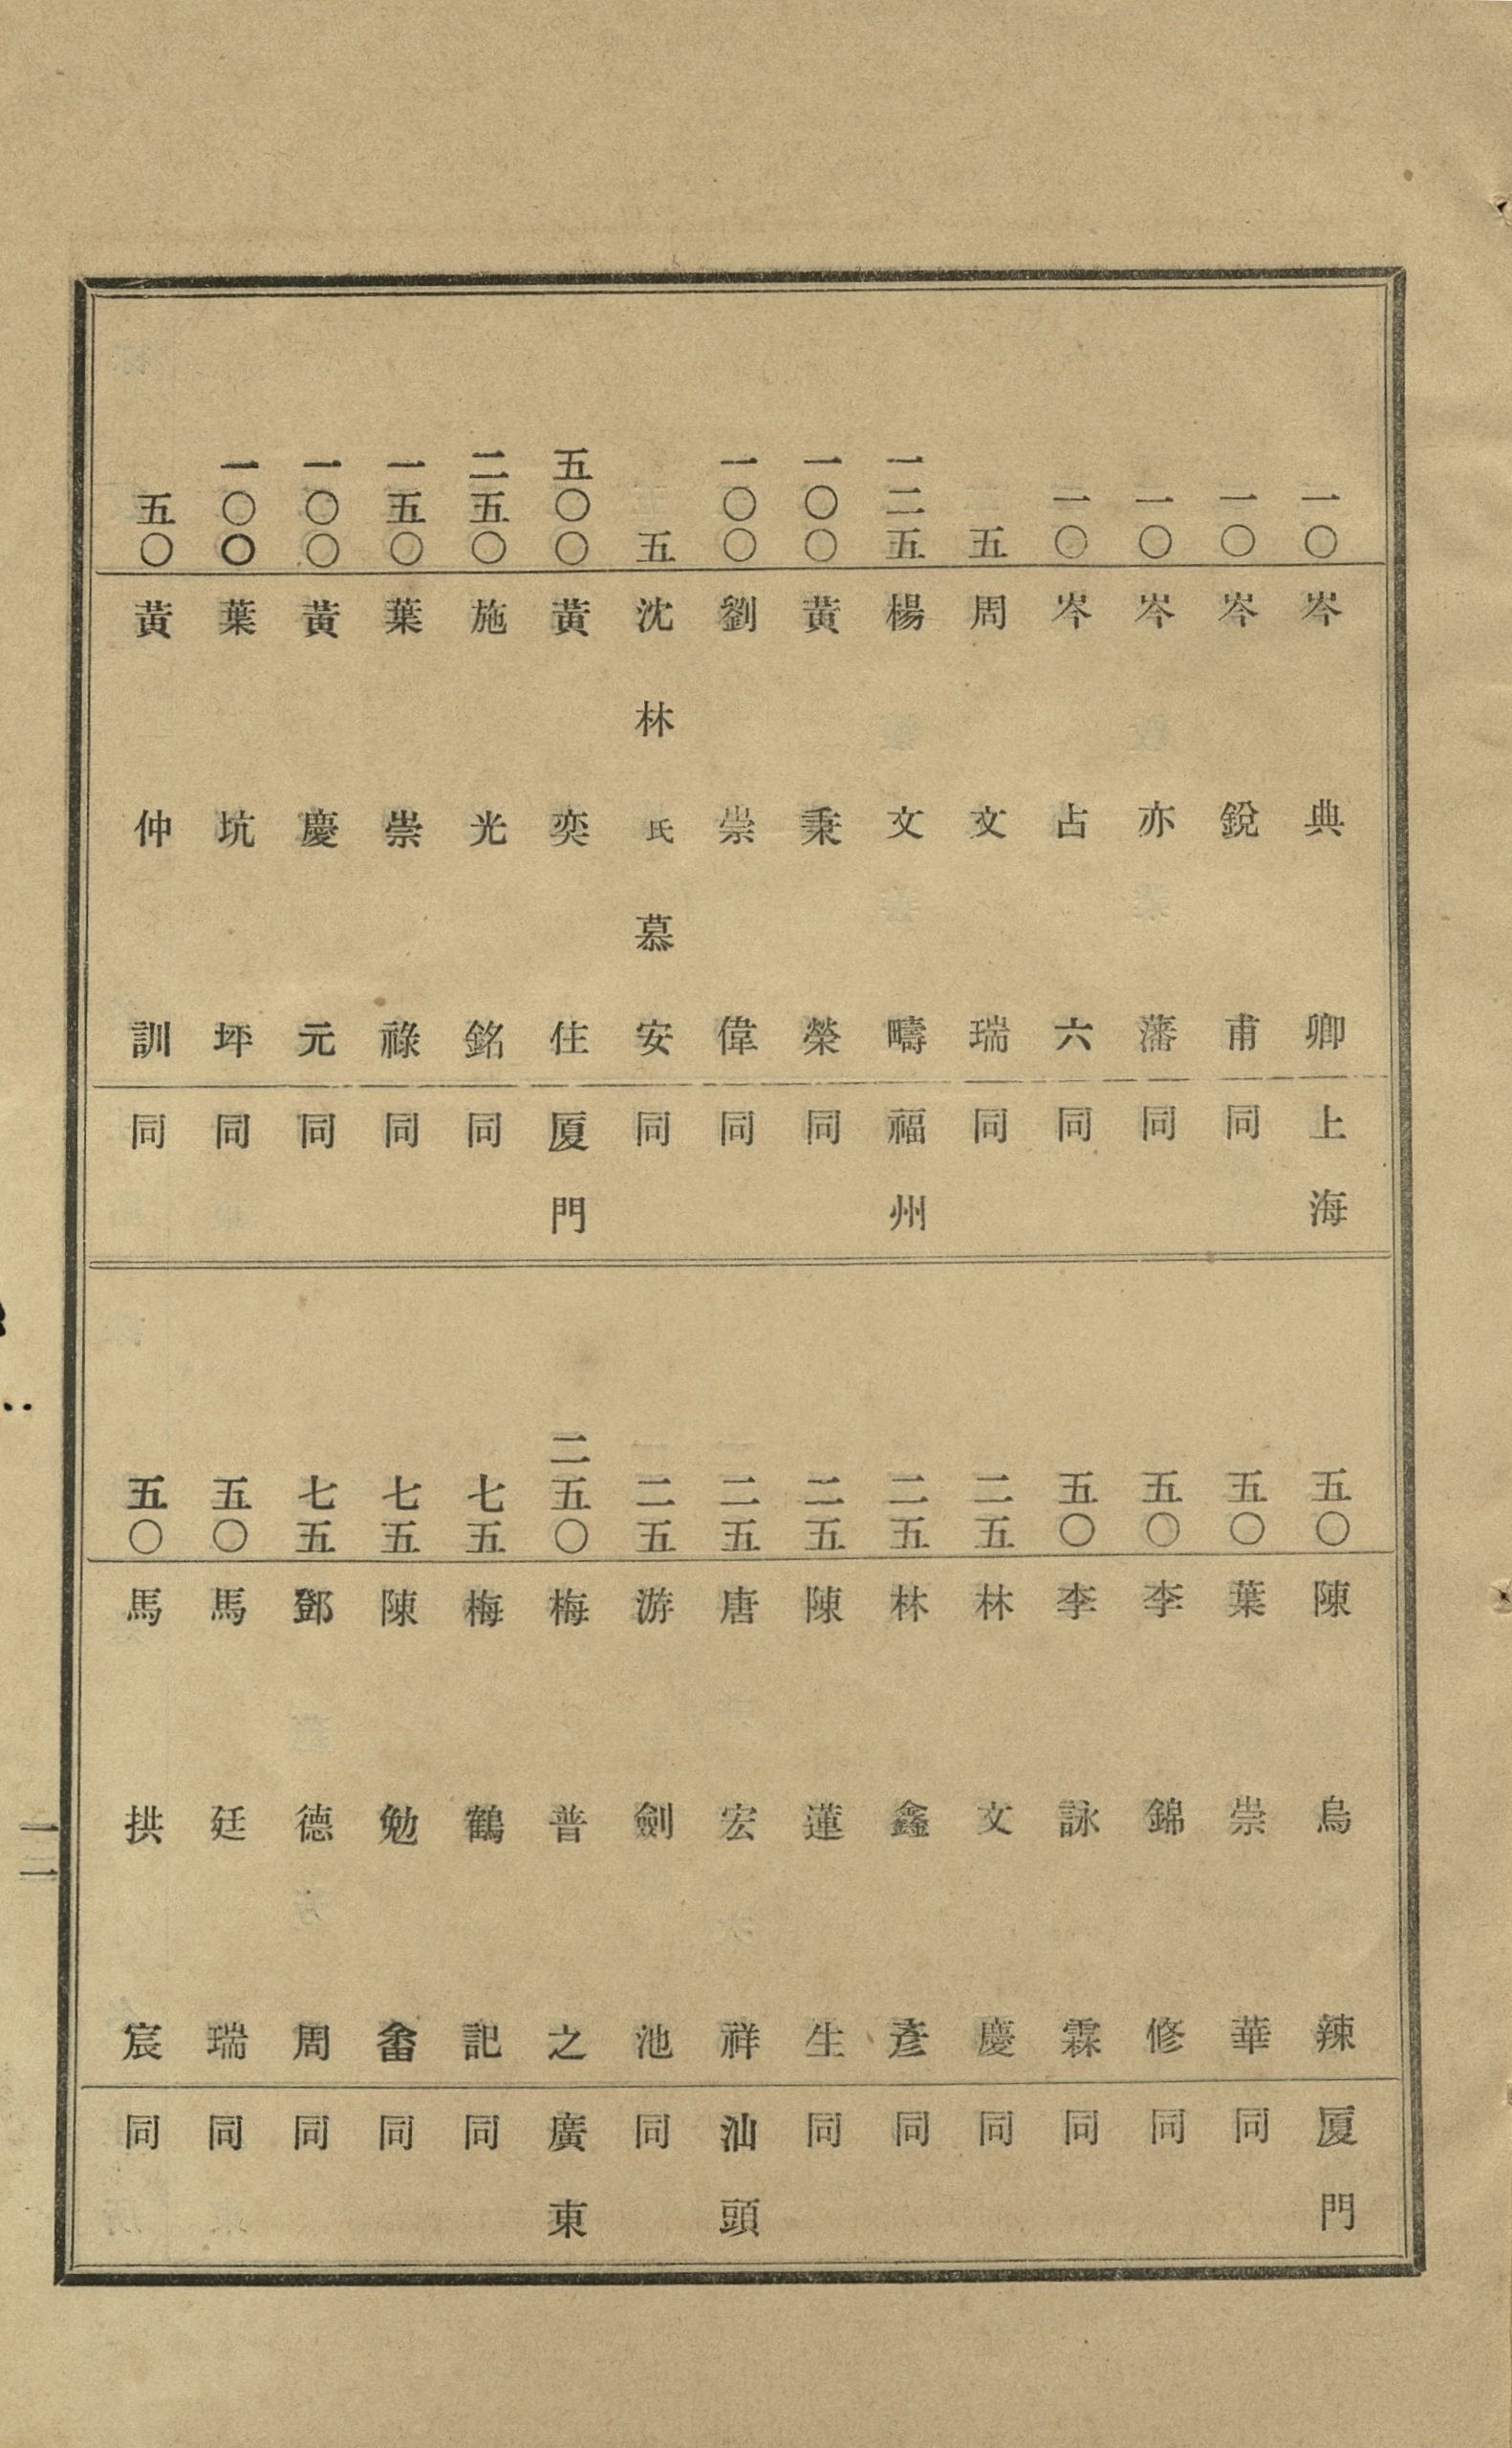 一〇 岑典卿 上海
一〇 岑銳甫 同
一〇 岑亦藩 同
一〇 岑占六 同
五 周文瑞 同
一二五 楊文疇 福州
一〇〇 黃秉榮 同
一〇〇 劉崇偉 同
五 沈林氏慕安 同
五〇〇 黃奕住 厦門
二五〇 施光銘 同
一五〇 葉崇祿 同
一〇〇 黃慶元 同
一〇〇 葉坑坪 同
五〇 黃仲訓 同
五〇 陳烏辣 厦門
五〇 葉崇華 同
五〇 李錦修 同
五〇 李詠霖 同
二五 林文慶 同
二五 林鑫彥 同
二五 陳蓮生 同
二五 唐宏祥 汕頭
二五 游劍池 同
二五〇 梅普之 廣東
七五 梅鶴記 同
七五 陳勉畬 同
七五 鄧德周 同
五〇 馬廷瑞 同
五〇 馬拱宸 同
一二